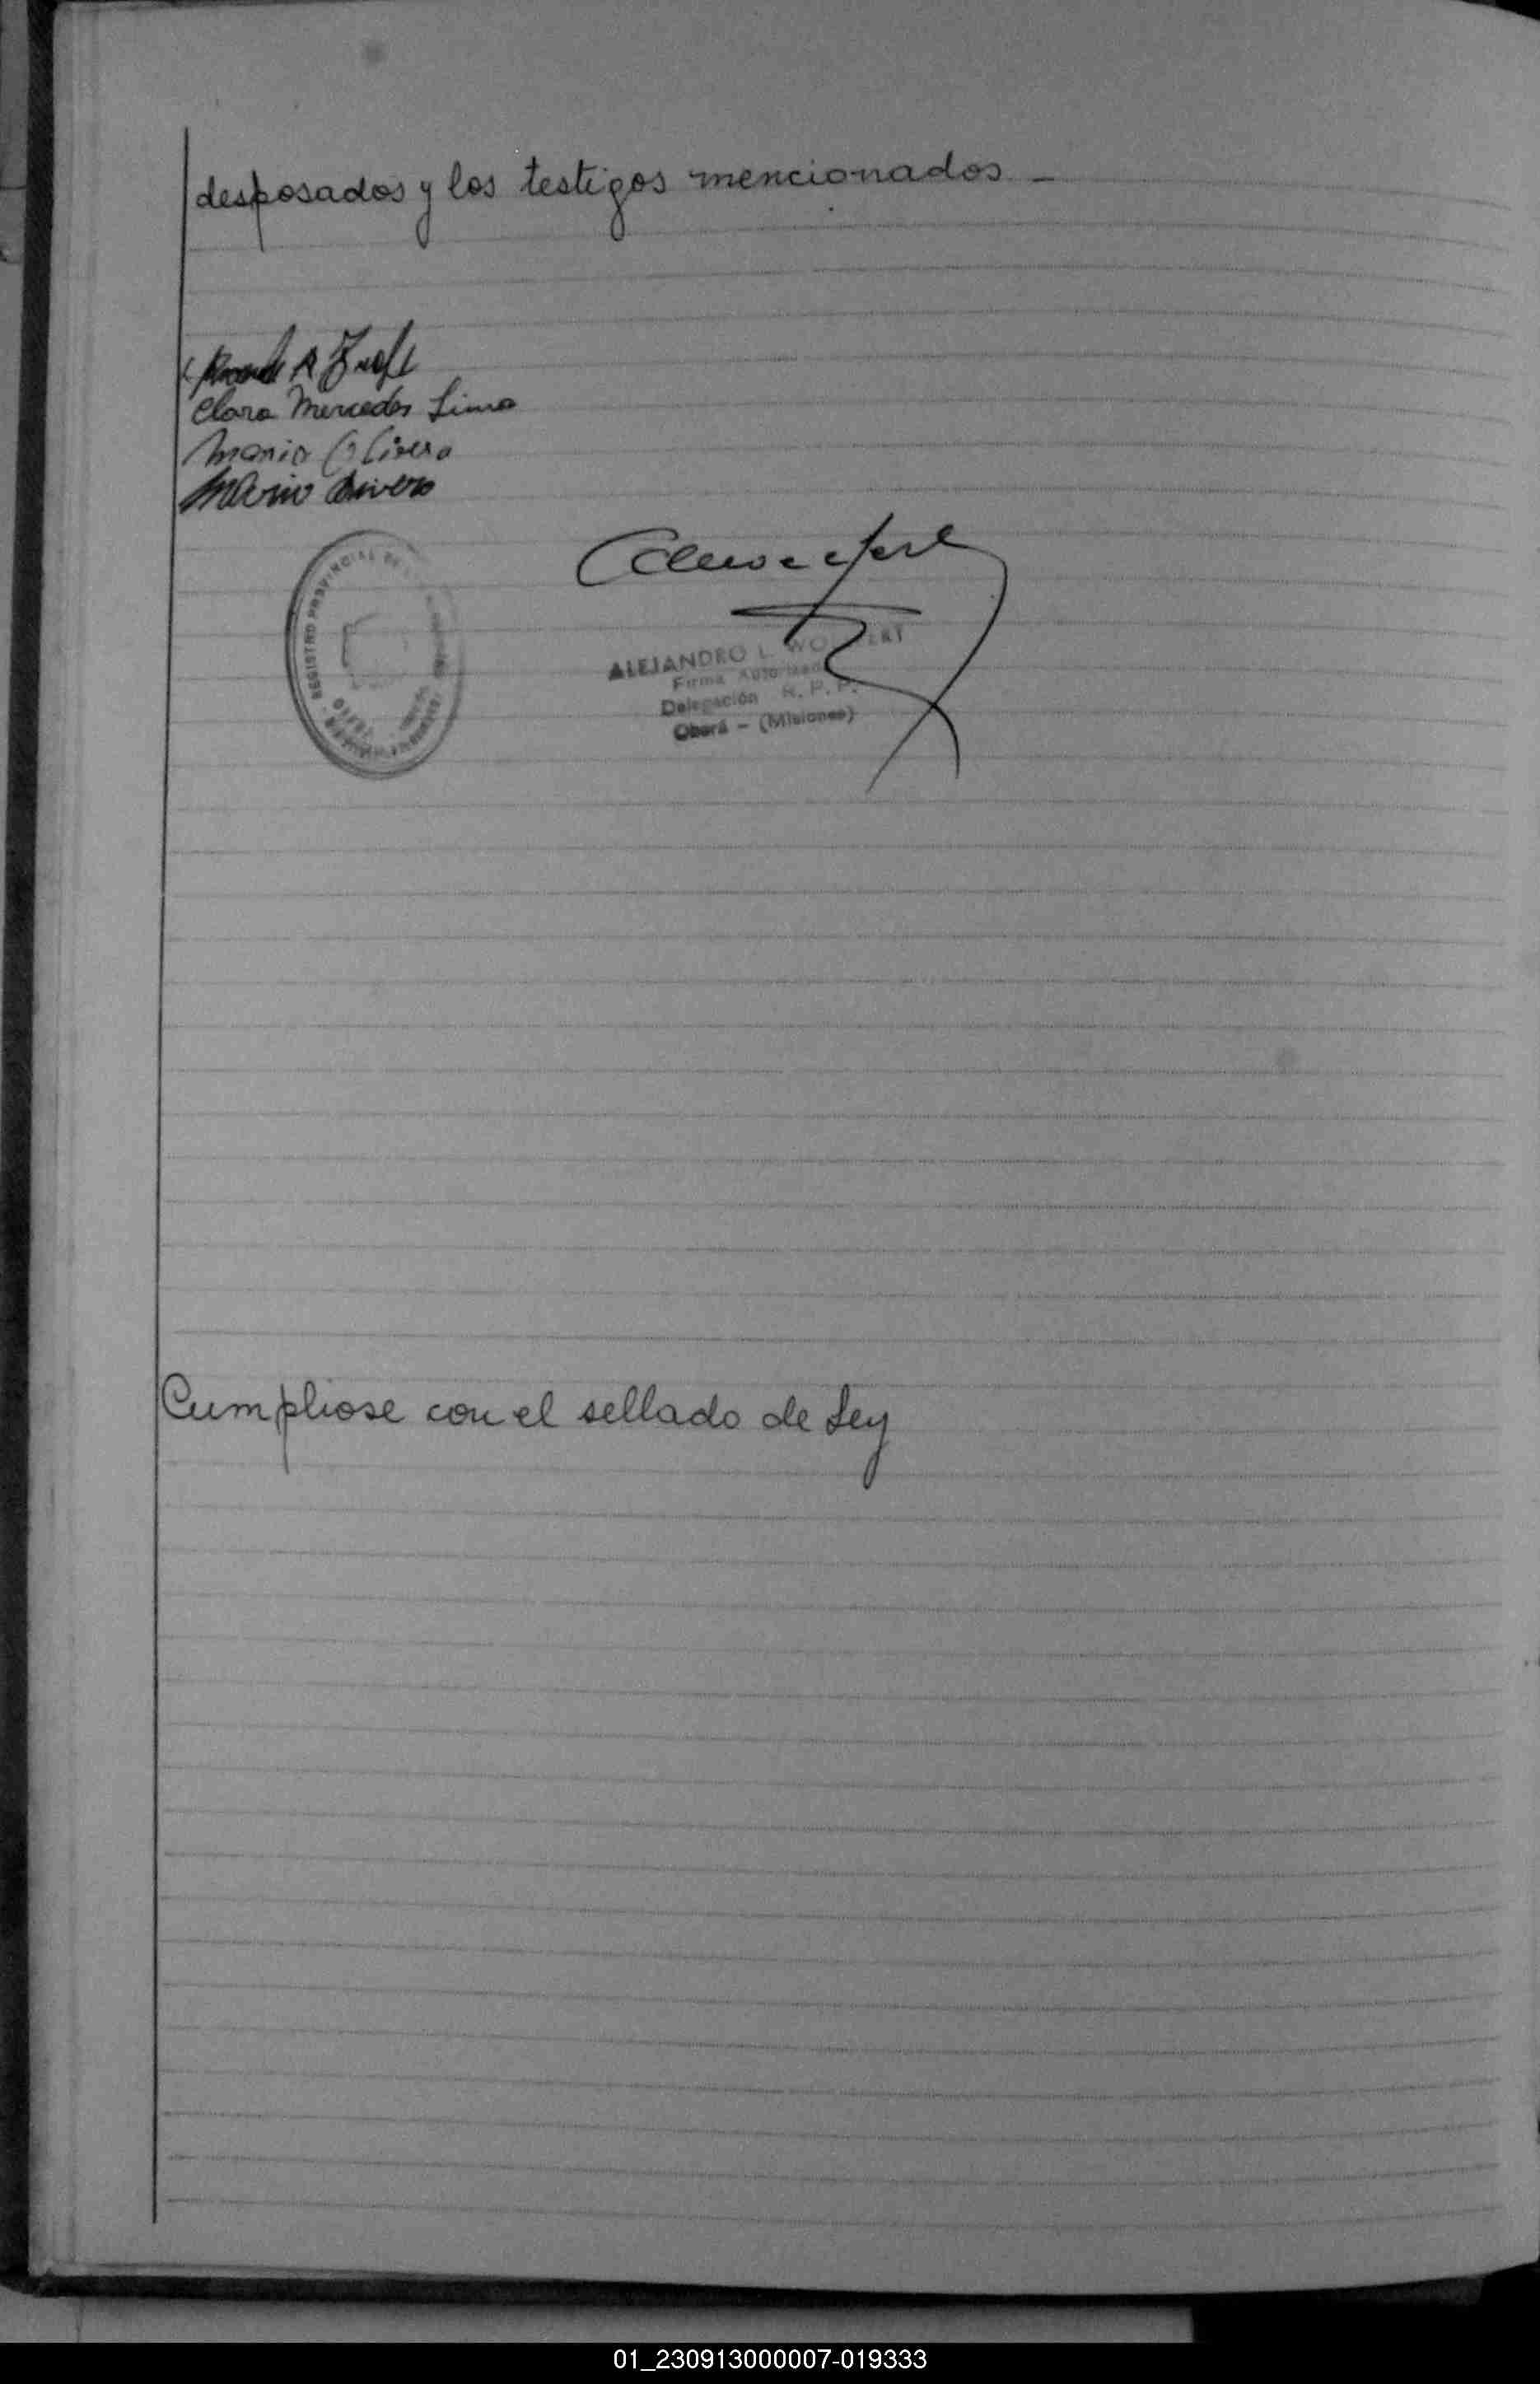 desposados y los testigos mencionados _
Clara Mercedes Lima
Maria Olivera
Mario
REGISTRO PROVINCIAL DE
ALEJANDRO L. WO
Firma Autorizada
Delegación R. P. P.
Oberá - (Misiones)
Cumpliose con el sellado de Ley
01_230913000007-019333